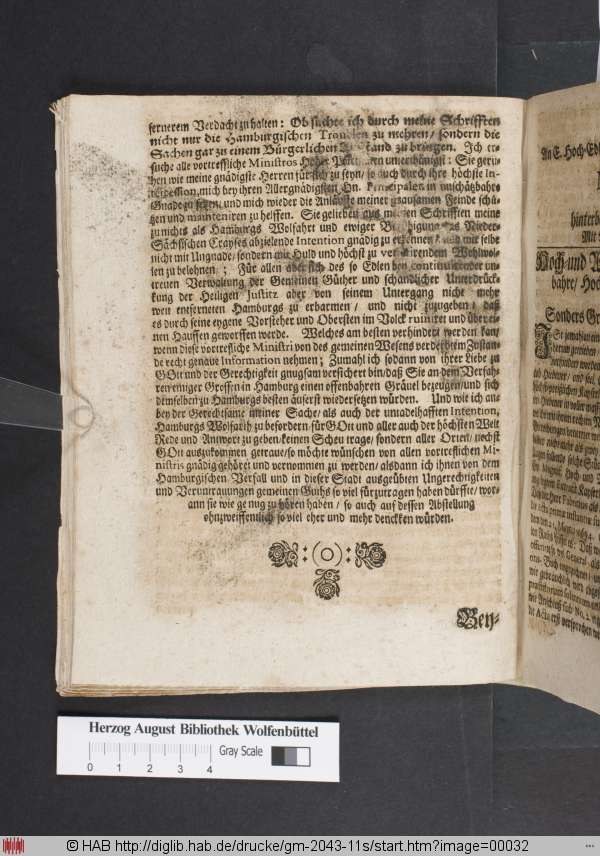 fernerem Verdacht zu halten: Ob suchte ich durch meine Schrifften
nicht nur die Hamburgischen Troublen zu mehren / sondern die
Sachen gar zu einem Bürgerlichen zu bringen. Ich er-
suche alle vortreffliche Ministros Hoher unterthänigst: Sie geru-
hen wie meine gnädigste Herren für sich zu seyn / so auch durch ihre höchste In-
tercession, mich bey ihren Allergnädigsten Hn. Principalen in unschätzbahre
Gnade zu setzen, und mich wieder die Anläuffe meiner grausamen Feinde schü-
tzen und mainteniren zu helffen. Sie gelieben aus meinen Schrifften meine
zu nichts als Hamburgs Wolfahrt und ewiger des Nieder-
Sächsischen Crayses abzielende Intention gnädig zu erkennen / und mir selbe
nicht mit Ungnade / sondern mit Huld und höchst zu verehrendem Wohlwol-
len zu belohnen; Für allen aber sich des so Edlen bey continuirender un-
treuen Verwaltung der Gemeinen Güther und schändlicher Unterdrück-
kung der Heiligen Justitz aber von seinem Untergang nicht mehr
weit entferneten Hamburgs zu erbarmen / und nicht zuzugeben / daß
es durch seine eygene Vorsteher und Obersten im Volck ruiniret und über ei-
nen Hauffen geworffen werde. Welches am besten verhindert werden kan /
wenn diese vortrefliche Ministri von des gemeinen Wesens verderbtem Zustan-
de recht genaue Information nehmen; Zumahl ich sodann von ihrer Liebe zu
GOtt und der Gerechtigkeit gnugsam versichert bin / daß Sie an dem Verfah-
ren einiger Grossen in Hamburg einen offenbahren Gräuel bezeugen / und sich
demselben zu Hamburgs besten äuserst wiedersetzen würden. Und wie ich an-
bey der Gerechtsame meiner Sache / als auch der untadelhafften Intention,
Hamburgs Wolfarth zu befordern / für GOtt und aller auch der höchsten Welt
Rede und Antwort zu geben / keinen Scheu trage / sondern aller Orten / nechst
GOtt auszukommen getraue / so möchte wünschen von allen vortreflichen Mi-
nistris gnädig gehöret und vernommen zu werden / alsdann ich ihnen von dem
Hamburgischen Verfall und in dieser Stadt ausgeübten Ungerechtigkeiten
und Veruntrauungen gemeinen Guths so viel fürzutragen haben dürffte / wor-
ann sie wie genug zu hören haben / so auch auf dessen Abstellung
ohnzweiffentlich so viel eher und mehr dencken würden.
Bey-
An E. Hoch-Edl
hinterb
Mit
Hoch- und
bahre / Hoc
Sonders Gr
Herzog August Bibliothek Wolfenbüttel
Gray Scale
0 1 2 3 4
© HAB http://diglib.hab.de/drucke/gm-2043-11s/start.htm?image=00032